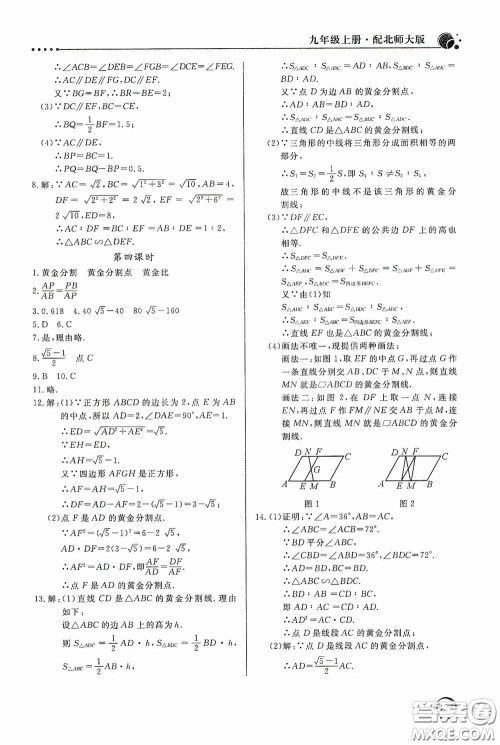 九年级上册·配北师大版
∴∠ACB=∠FGB=∠DCE=∠FEG.
∴AC∥DE∥FG,DF∥BE.
又∵BG=BF,∴BC=BD.
(3)∵DF∥BE,BC=CE,
∴BQ=1/2BF=1.5;
(4)∵AC∥DE,
∴BP=BC=1.
∴PQ=BQ-BP=0.5.
8.解:∵AC=√2,BC=√(1²+3²)=√10,AB=4,
DF=√(2²+2²)=2√2,EF=√(2²+6²)=
2√10,ED=8,
∴AC∶DF=BC∶EF=AB∶DE=1∶2;
∴△ABC∽△DEF.
第四课时
1.黄金分割 黄金分割点 黄金比
2.AP/AB=PB/AP
3.0.618 4.40√5-40 80√5-160
5.D 6.C
7.是,理由略.
8.(√5-1)/2 点C
9.B 10.C
11.略.
12.解:(1)∵正方形ABCD的边长为2,点E为AB
的中点,所以AD=2,∠DAE=90°,AE=1.
∴ED=√(AD²+AE²)=√5.
∵EH=ED,
∴AH=√5-1.
又∵四边形AFGH是正方形,
∴AF=AH=√5-1;
∴DF=AD-AF=2-(√5-1)=3-√5.
(2)点F是AD的黄金分割点.
∵AF²=(√5-1)²=6-2√5,
AD·DF=2(3-√5)=6-2√5,
∴AF²=AD·DF,即AF/AD=DF/AF.
∴点F是AD的黄金分割点.
13.解:(1)直线CD是△ABC的黄金分割线.理由
如下:
设△ABC的边AB上的高为h.
则S△ADC=1/2AD·h,S△BDC=1/2BD·h,
S△ABC=1/2AB·h,
∴S△ADC∶S△ABC=AD∶AB,S△BDC∶S△ADC=
BD∶AD.
又∵点D为边AB的黄金分割点,
∴AD∶AB=BD∶AD.
∴S△ADC∶S△ABC=S△BDC∶S△ADC
∴直线CD是△ABC的黄金分割线;
(2)∵三角形的中线将三角形分成面积相等的两
部分,
∴S₁=S₂=1/2S,即S₁∶S≠S₂∶S₁;
故三角形的中线不是该三角形的黄金分
割线.
(3)∵DF∥EC,
∴△DFC和△DFE的公共边DF上的高也
相等,
∴S△DFC=S△DFE
∴S△ADC=S△ADF+S△DFC=S△ADF+S△DFE=
S△AEF,S△BDC=S四边形BEFC
又∵由(1)知
∴S△ADC∶S△ABC=S△BDC∶S△ADC,
∴S△AEF∶S△ABC=S四边形BEFC∶S△AEF
∴直线EF也是△ABC的黄金分割线;
(4)画法不唯一,现提供两种画法;
画法一:如图1,取EF的中点G,再过点G作
一条直线分别交AB、DC于M、N点,则直线
MN就是□ABCD的黄金分割线.
画法二:如图2,在DF上取一点N,连接
EN,再过点F作FM∥NE交AB于点M,连
接MN,则直线MN就是□ABCD的黄金分
割线.
D F N C D F N C
G
A E M B A E M B
图1 图2
14.(1)证明:∵∠A=36°,AB=AC,
∴∠ABC=∠ACB=72°.
∵BD平分∠ABC,
∴∠CBD=∠ABD=36°,∠BDC=72°.
∴AD=BD,BC=BD,
∴△ABC∽△BDC.
∴BD∶AB=CD∶BC,
即AD∶AC=CD∶AD.
∴AD²=AC·CD.
∴点D是线段AC的黄金分割点.
(2)∵点D是线段AC的黄金分割点,
∴AD=(√5-1)/2AC.